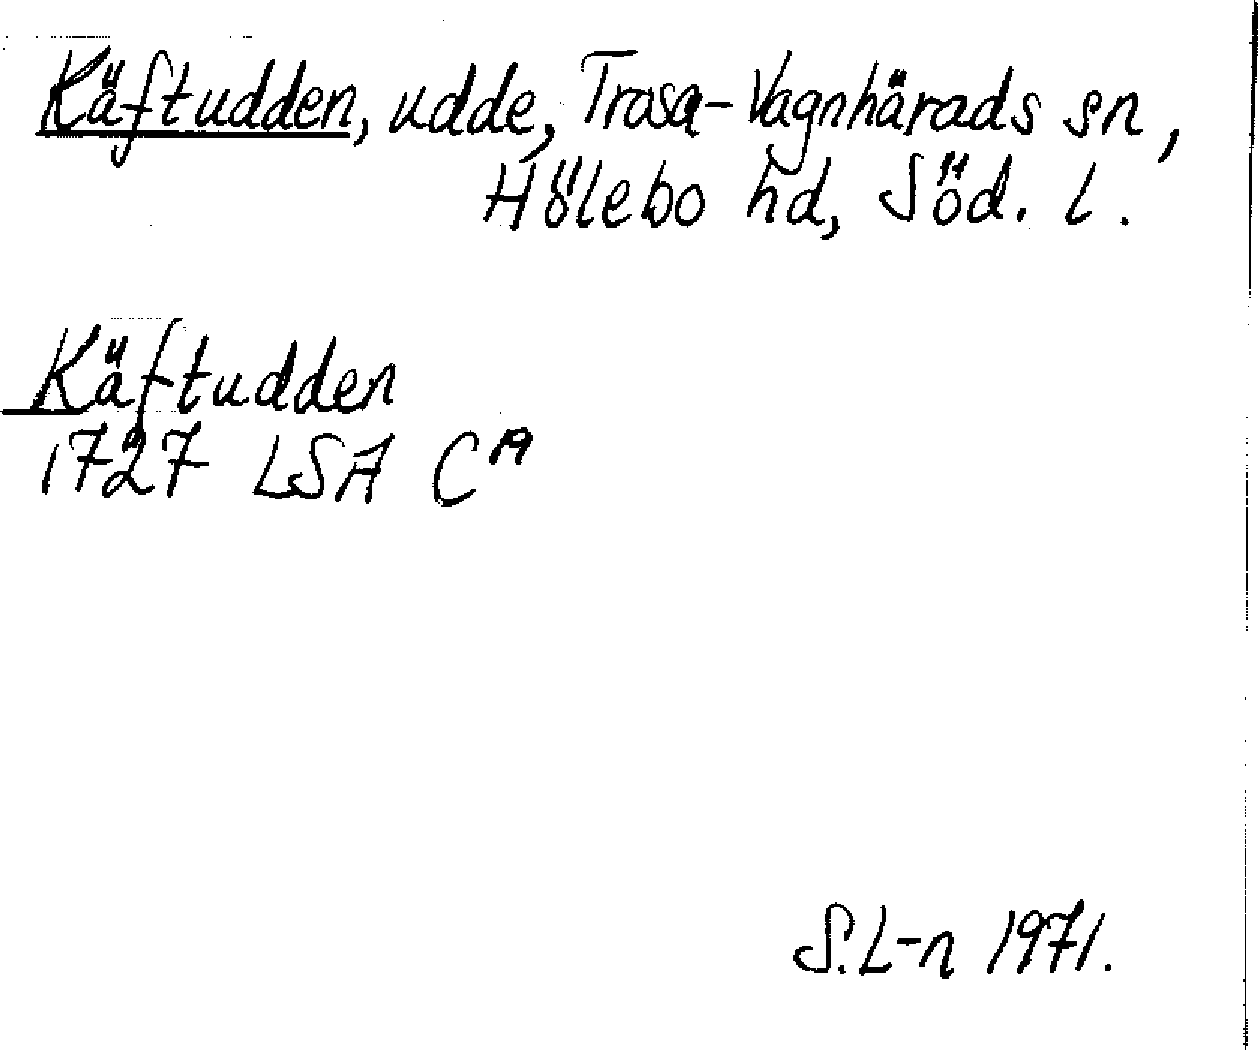 Käftudden, udde, Trosa-Vagnhärads sn,
Hölebo hd, Söd. l.
Käftudden
1727 LSA C19
S.L-n 1971.